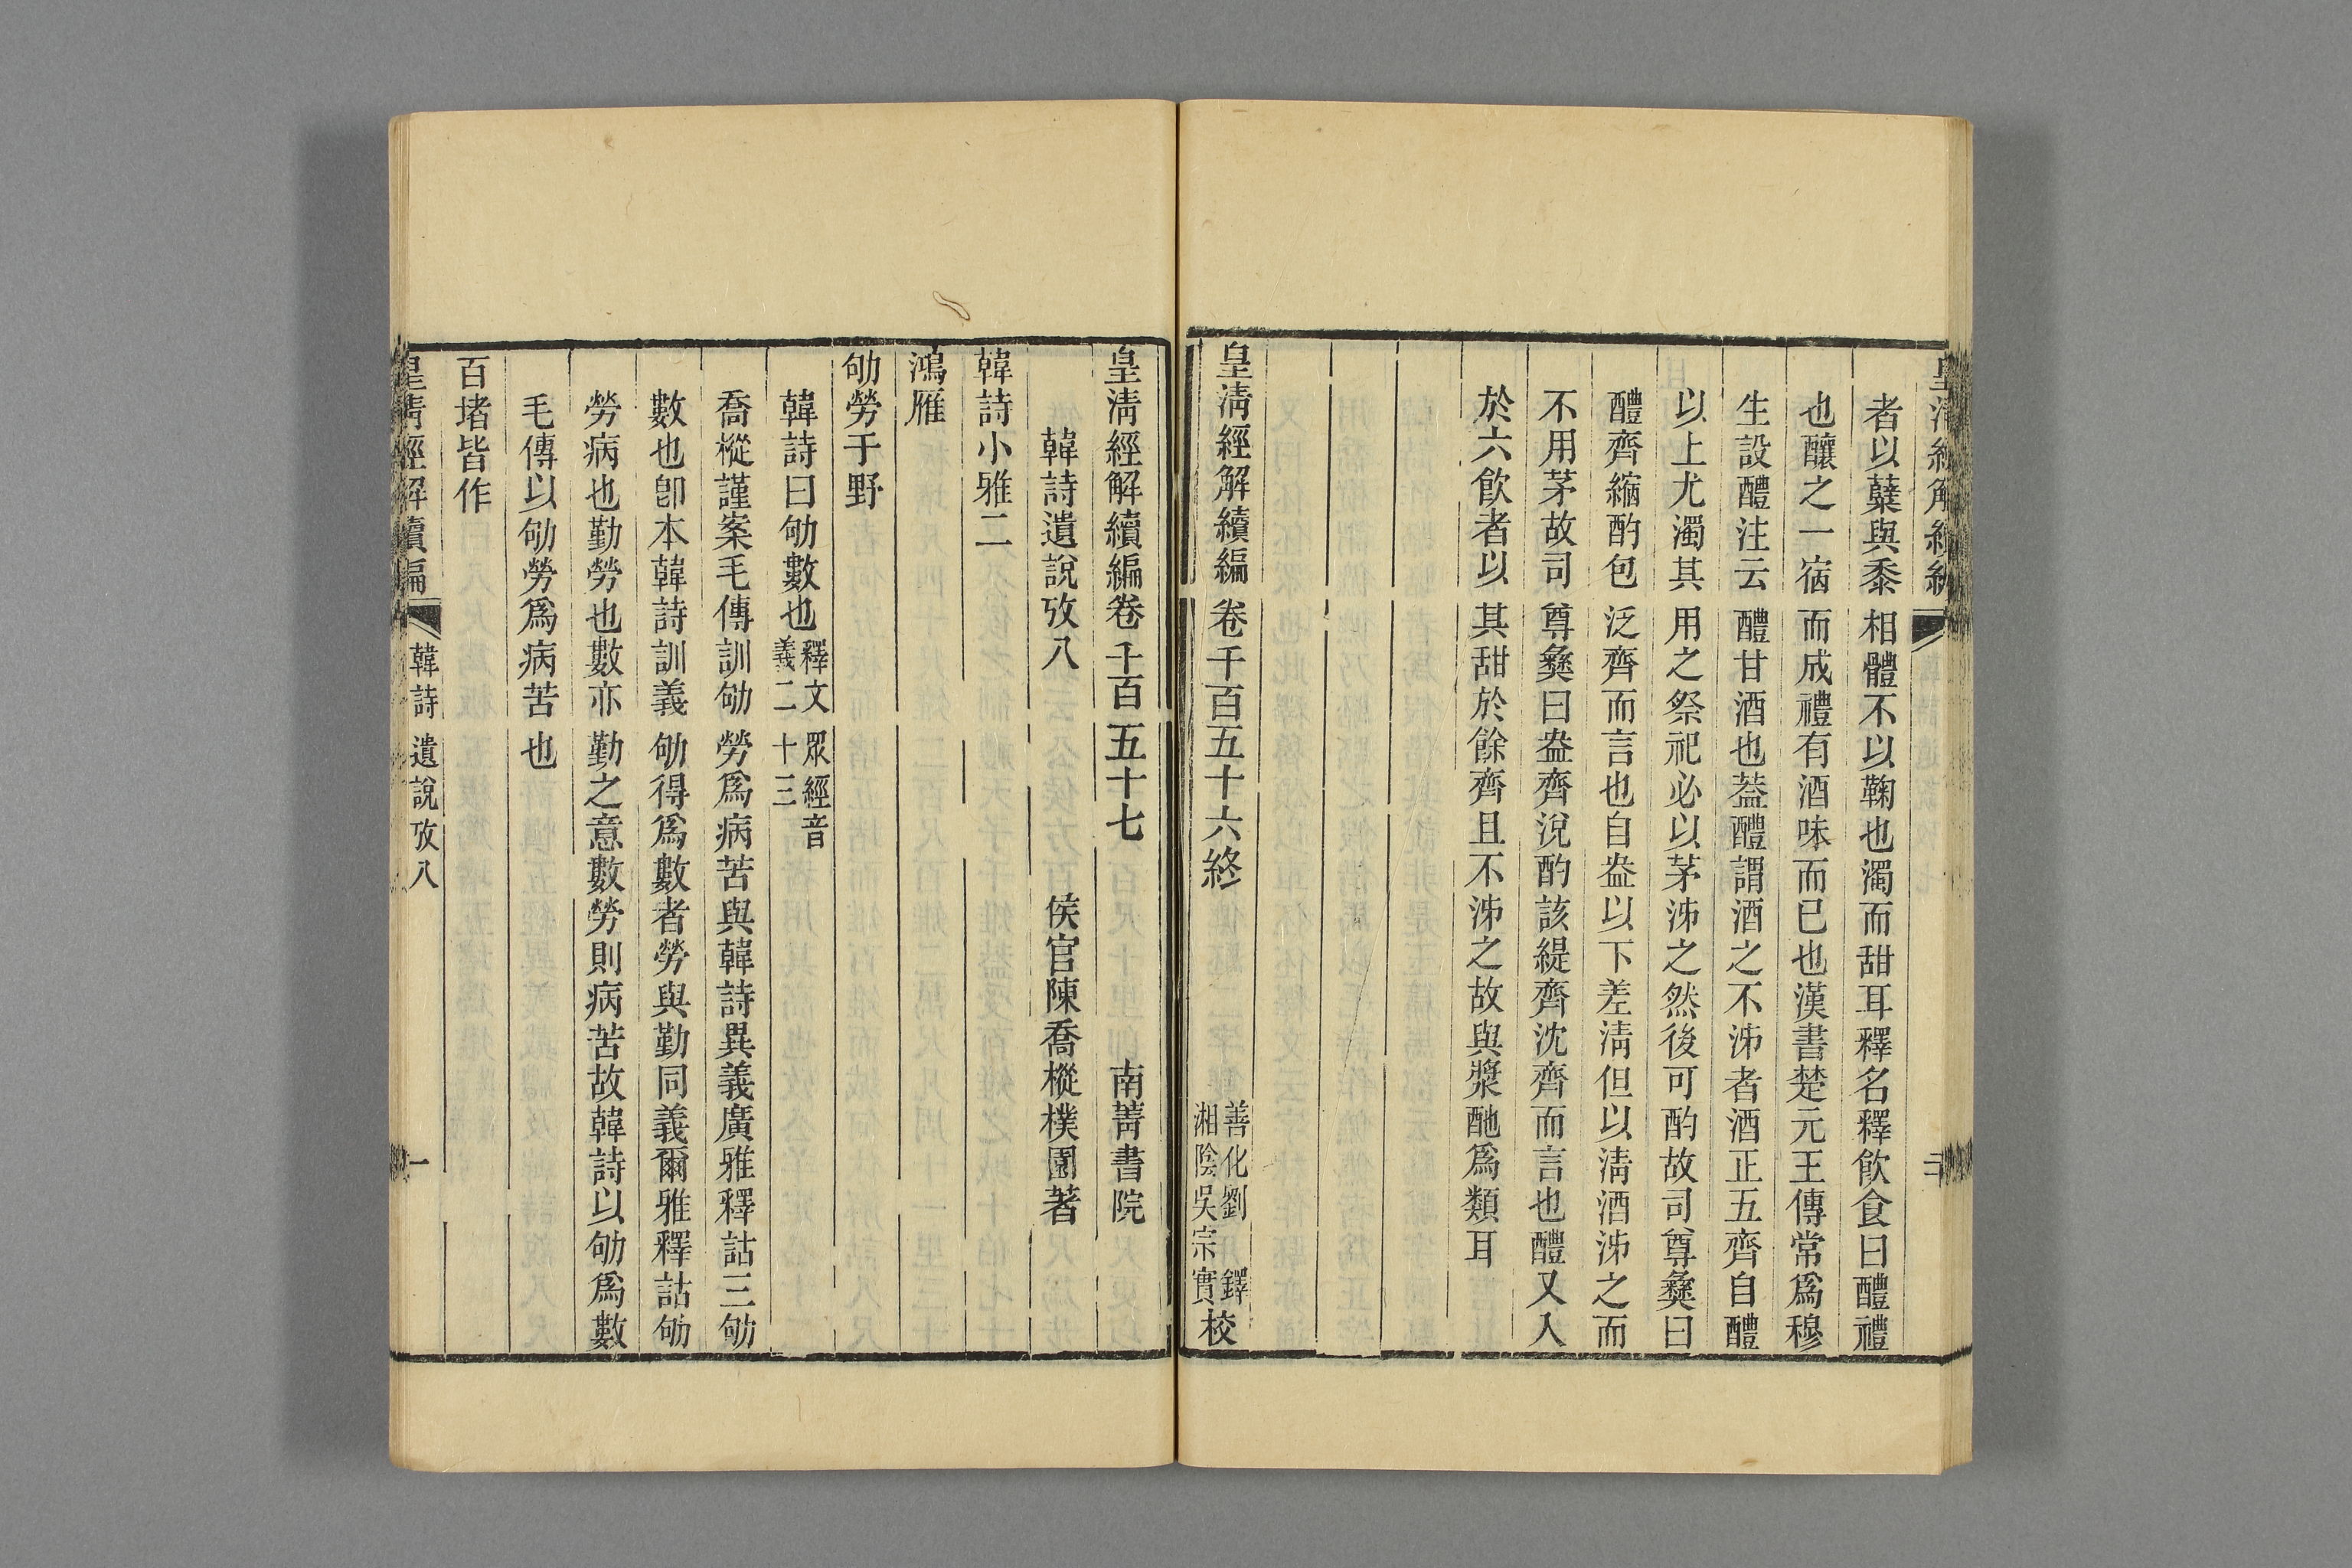 者以糵與黍相體不以鞠也濁而甜耳釋名釋飲食曰醴禮
也釀之一宿而成禮有酒味而已也漢書楚元王傳常爲穆
生設醴注云醴甘酒也葢醴謂酒之不泲者酒正五齊自醴
以上尤濁其用之祭祀必以茅泲之然後可酌故司尊彝曰
醴齊縮酌包泛齊而言也自盎以下差淸但以淸酒泲之而
不用茅故司尊彝曰盎齊涚酌該緹齊沈齊而言也醴又入
於六飮者以其甜於餘齊且不泲之故與漿酏爲類耳
皇淸經解續編卷千百五十六終
善化劉鐸
湘陰吳宗實校
皇淸經解續編卷千百五十七
南菁書院
韓詩遺說攷八
侯官陳喬樅樸園著
韓詩小雅二
鴻雁
劬勞于野
韓詩曰劬數也釋文眾經音義二十三
喬樅謹案毛傳訓劬勞爲病苦與韓詩異義廣雅釋詁三劬
數也卽本韓詩訓義劬得爲數者勞與勤同義爾雅釋詁劬
勞病也勤勞也數亦勤之意數勞則病苦故韓詩以劬爲數
毛傳以劬勞爲病苦也
百堵皆作
皇淸經解續編 韓詩遺說攷八 一